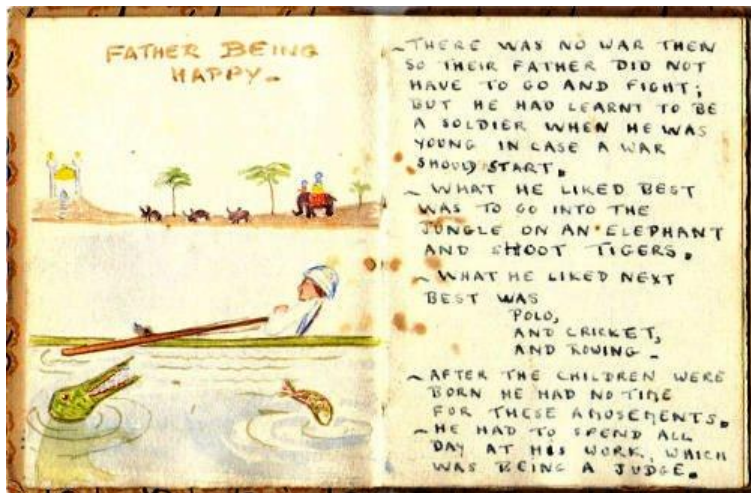 FATHER BEING
HAPPY.
~THERE WAS NO WAR THEN
SO THEIR FATHER DID NOT
HAVE TO GO AND FIGHT;
BUT HE HAD LEARNT TO BE
A SOLDIER WHEN HE WAS
YOUNG IN CASE A WAR
SHOULD START.
~ WHAT HE LIKED BEST
WAS TO GO INTO THE
JUNGLE ON AN ELEPHANT
AND SHOOT TIGERS.
~ WHAT HE LIKED NEXT
BEST WAS
POLO,
AND CRICKET,
AND ROWING.
~ AFTER THE CHILDREN WERE
BORN HE HAD NO TIME
FOR THESE AMUSEMENTS.
~ HE HAD TO SPEND ALL
DAY AT HIS WORK, WHICH
WAS BEING A JUDGE.